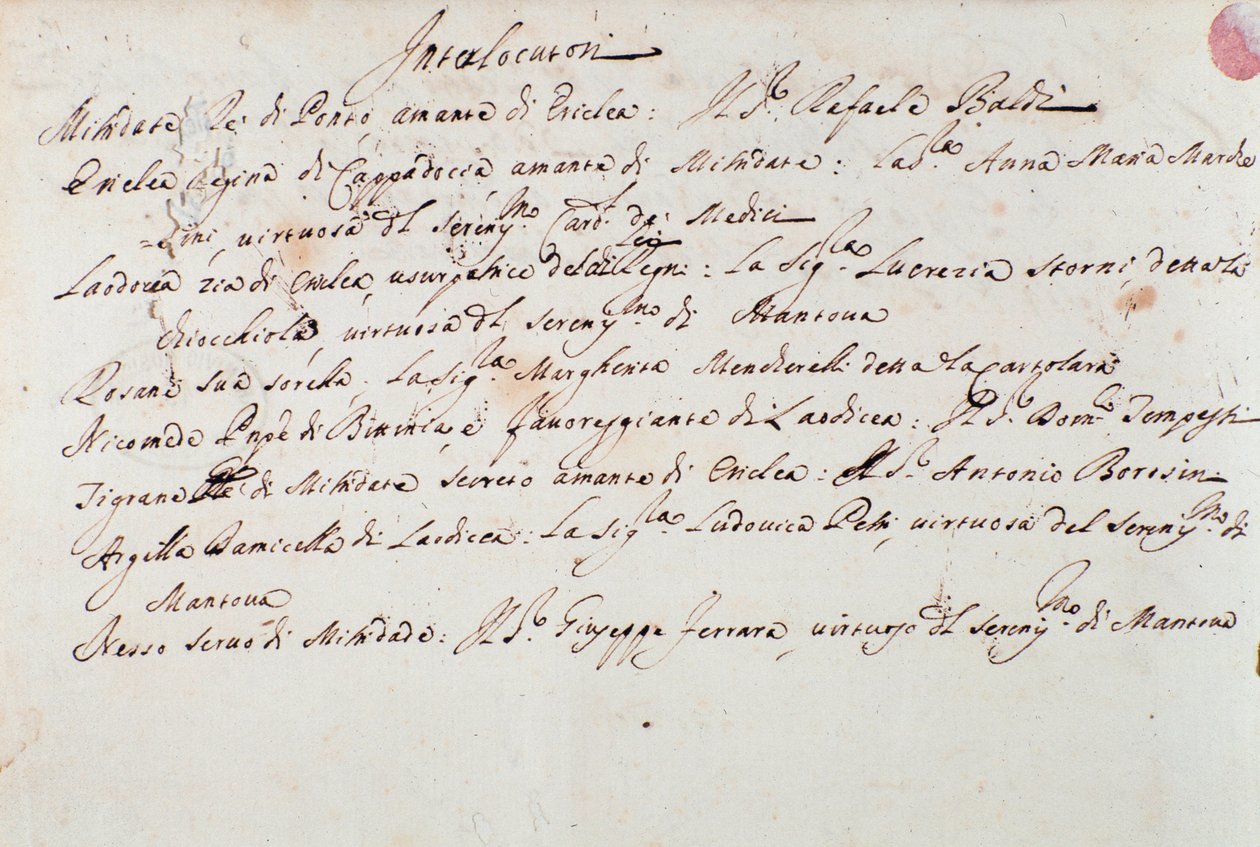 Interlocutori
Mitridate Re di Ponto amante di Ericlea: Il S.r Rafaele Baldi
Ericlea Regina di Cappadocia amante di Mitridate: La S.ra Anna Maria Marche
=sini, virtuosa del Sereniss.mo Card.l de Medici
Laodicea zia di Ericlea, usurpatrice del di lei Regni: La Sig.ra Lucrezia Storni, detta la
Chiocchiola, virtuosa del Sereniss.mo di Mantova
Rosane sua sorella. La Sig.ra Margherita Mencherelli detta la Cartolara
Nicomede Pnpe di Bittinia, e favoreggiante di Laodicea: Il S.r Dom.co Tempesti
Tigrane di Mitridate secreto amante di Ericlea: Il S.r Antonio Borosini
Argilla Damicella di Laodicea: La Sig.ra Ludovica Petri, virtuosa del Sereniss.mo di
Mantova
Nesso servo di Mitridade: Il S.r Giuseppe Ferrara, virtuoso del Sereniss.mo di Mantova